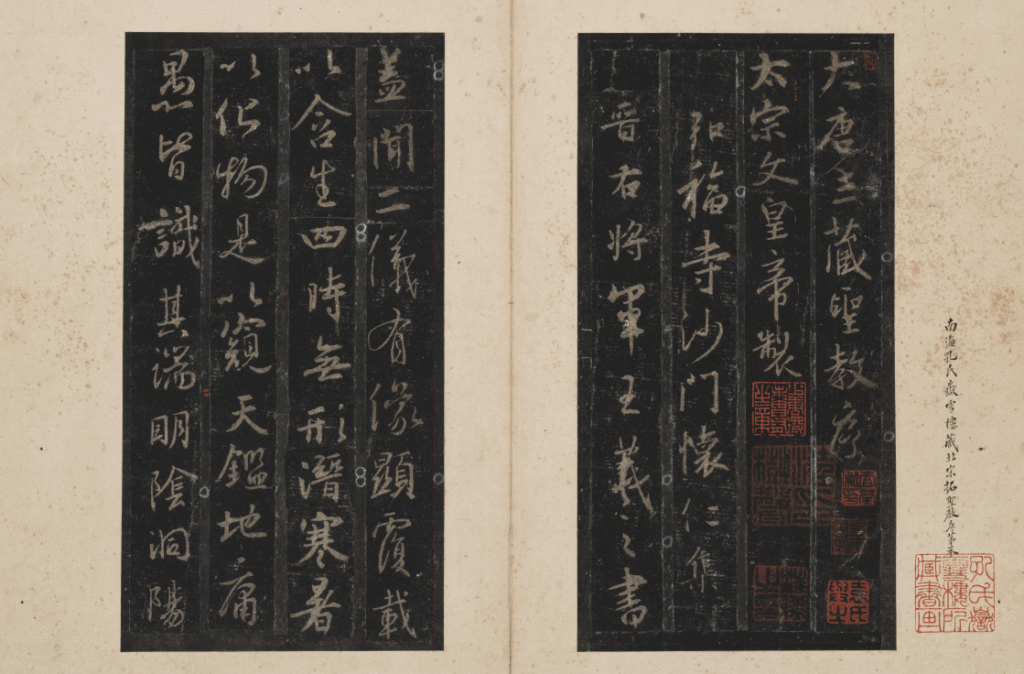 南海孔氏嶽雪樓藏北宋拓聖教序
孔氏嶽雪樓所藏書画
大唐三藏聖教序
太宗文皇帝製
弘福寺沙門懷仁集
晉右將軍王羲之書
蓋聞二儀有像顯覆載
以含生四時無形潛寒暑
以化物是以窺天鑑地庸
愚皆識其端明陰洞陽